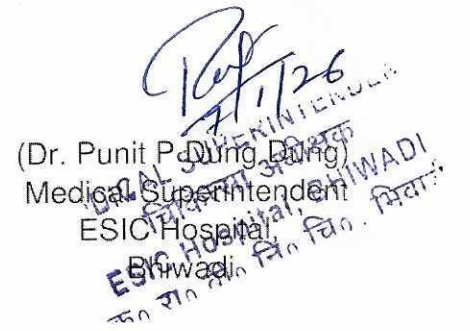 7/1/26
(Dr. Punit P Dung Dung)
Medical Superintendent
ESIC Hospital,
Bhiwadi
MEDICAL SUPERINTENDER
चिकित्सा अधीक्षक
ESIC Hospital, BHIWADI
क० रा० बी० नि० चि०. भिवाड़ी